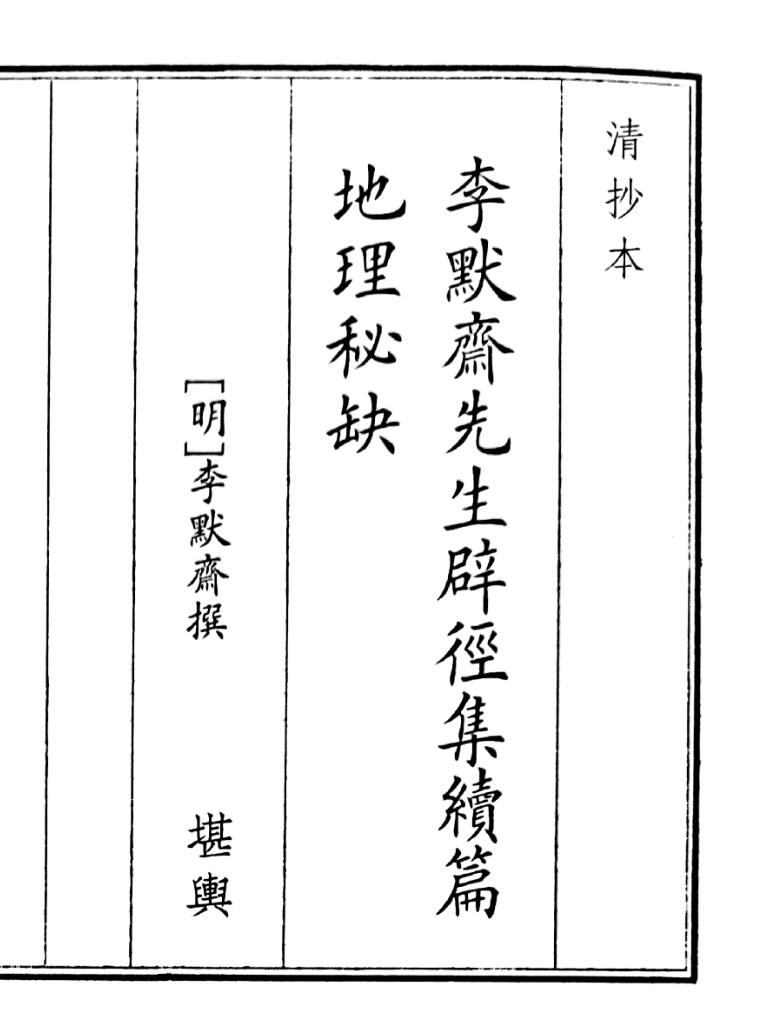 清抄本
李默齋先生辟徑集續篇
地理秘缺
[明]李默齋撰
堪輿